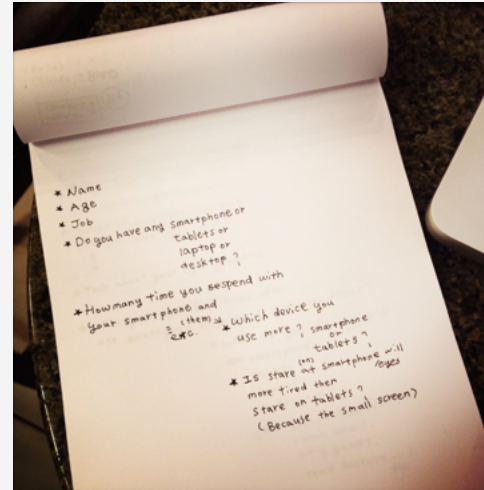 * Name
* Age
* Job
* Do you have any smartphone or
tablets or
laptop or
desktop ?
* How many time you sespend with
your smartphone and
(them)
etc.
* Which device you
use more ? smartphone
or
tablets ?
(on)
* Is stare at smartphone will
/eyes
more tired then
stare on tablets ?
(Because the small screen)